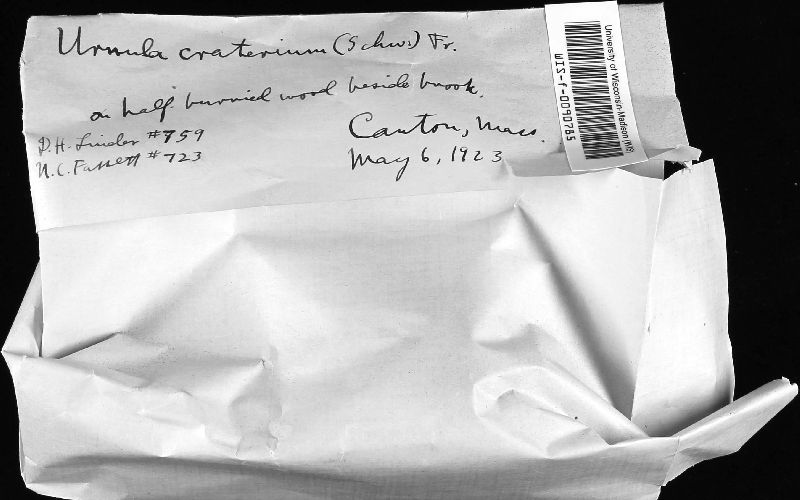 Urnula craterium (Schw.) Fr.
on half burried wood beside brook.
D.H. Linder #759
N.C. Fassett #723
Canton, Mass.
May 6, 1923
University of Wisconsin-Madison (WIS)
WIS-f-0090765